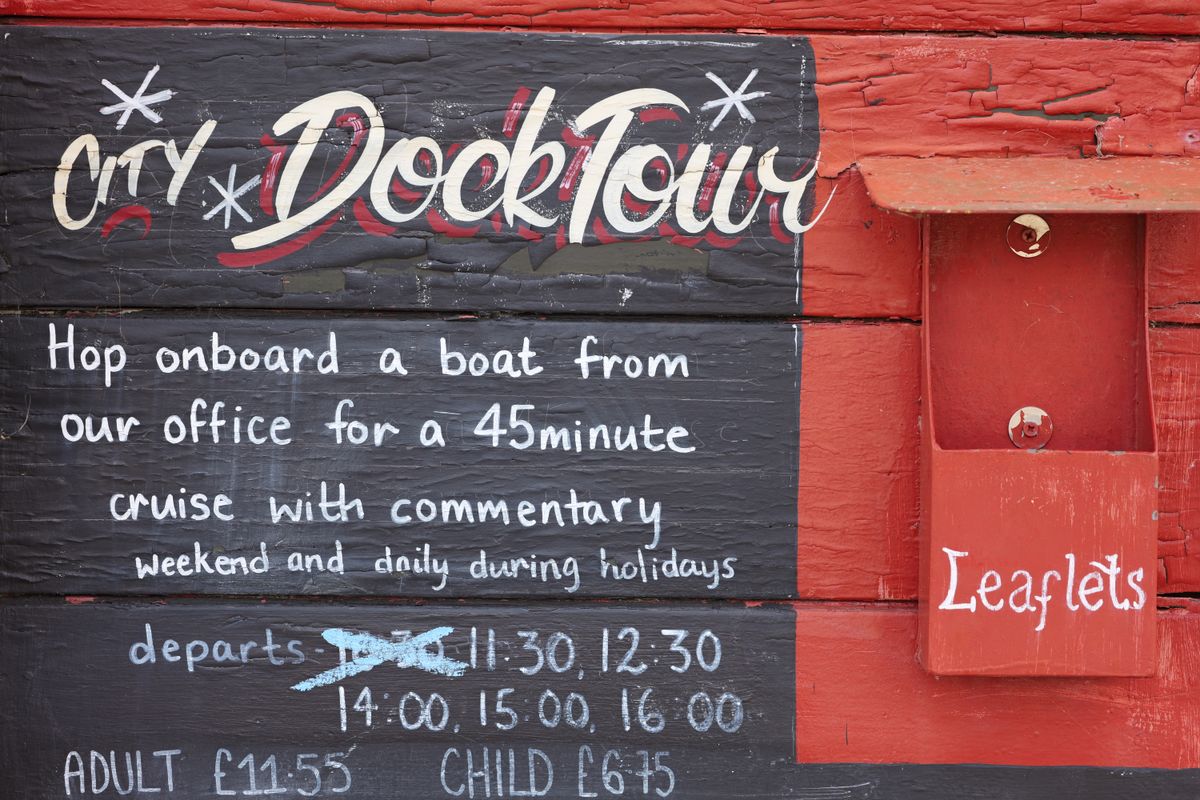 CITY DockTour
Hop onboard a boat from
our office for a 45minute
cruise with commentary
weekend and daily during holidays
departs - 11:30, 12:30
14:00, 15:00, 16:00
ADULT £11.55 CHILD £6.75
Leaflets